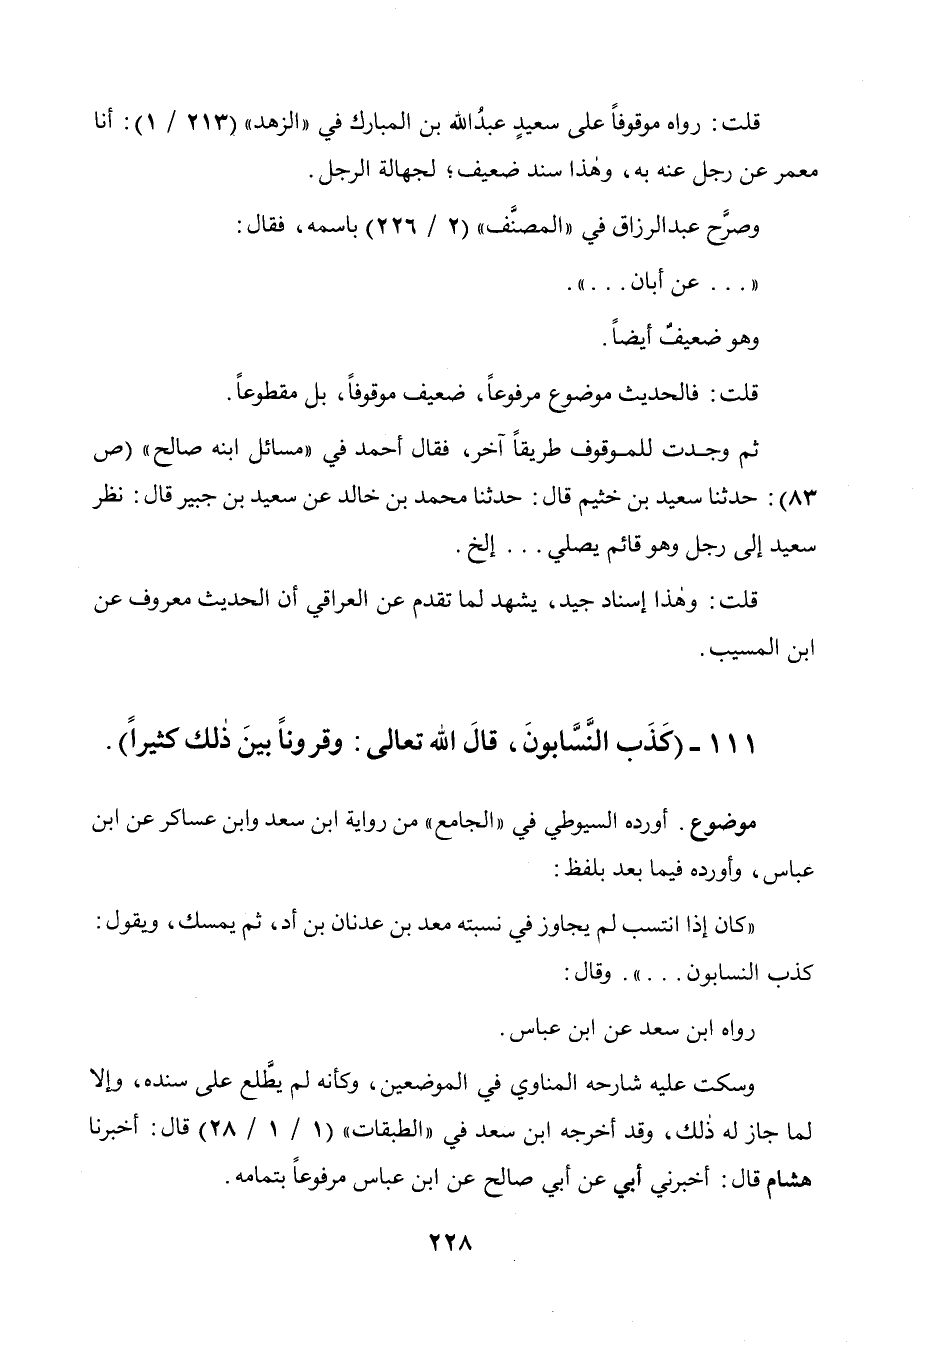 قلت: رواه موقوفاً على سعيدٍ عبدُالله بن المبارك في «الزهد» (٢١٣ / ١): أنا
معمر عن رجل عنه به، وهٰذا سند ضعيف؛ لجهالة الرجل.
وصرَّح عبدالرزاق في «المصنَّف» (٢ / ٢٢٦) باسمه، فقال:
«... عن أبان...».
وهو ضعيفٌ أيضاً.
قلت: فالحديث موضوع مرفوعاً، ضعيف موقوفاً، بل مقطوعاً.
ثم وجدت للموقوف طريقاً آخر، فقال أحمد في «مسائل ابنه صالح» (ص
٨٣): حدثنا سعيد بن خثيم قال: حدثنا محمد بن خالد عن سعيد بن جبير قال: نظر
سعيد إلى رجل وهو قائم يصلي... إلخ.
قلت: وهٰذا إسناد جيد، يشهد لما تقدم عن العراقي أن الحديث معروف عن
ابن المسيب.
١١١ - (كَذَب النَّسَّابونَ، قالَ الله تعالى: وقروناً بينَ ذٰلك كثيراً).
موضوع. أورده السيوطي في «الجامع» من رواية ابن سعد وابن عساكر عن ابن
عباس، وأورده فيما بعد بلفظ:
«كان إذا انتسب لم يجاوز في نسبته معد بن عدنان بن أد، ثم يمسك، ويقول:
كذب النسابون...». وقال:
رواه ابن سعد عن ابن عباس.
وسكت عليه شارحه المناوي في الموضعين، وكأنه لم يطَّلع على سنده، وإلا
لما جاز له ذٰلك، وقد أخرجه ابن سعد في «الطبقات» (١ / ١ / ٢٨) قال: أخبرنا
هشام قال: أخبرني أبي عن أبي صالح عن ابن عباس مرفوعاً بتمامه.
٢٢٨